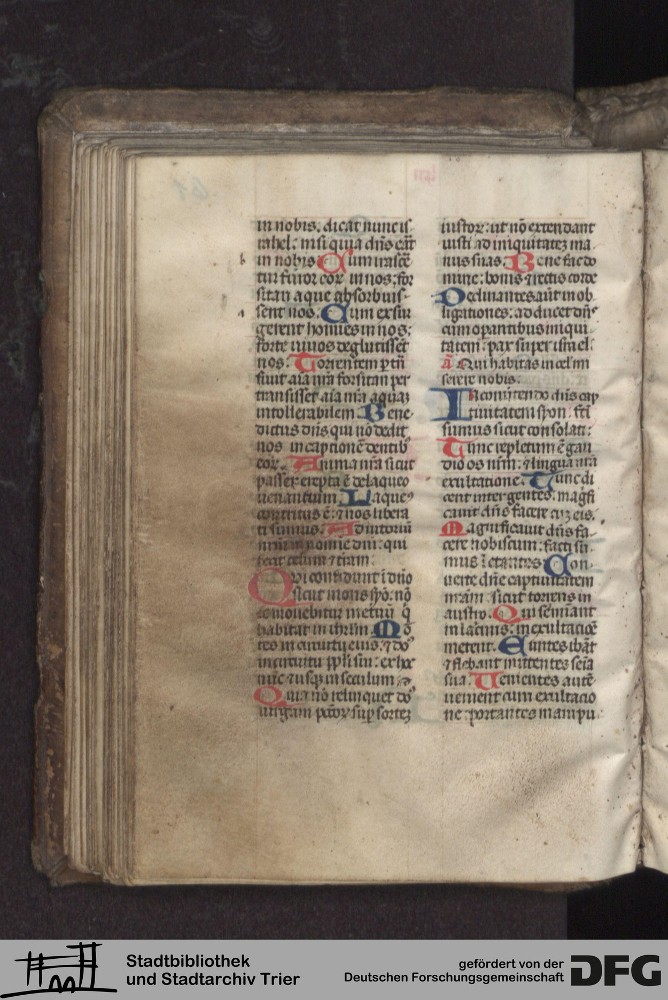 in nobis. dicat nunc is
rahel: nisi quia dñs eat
in nobis Cum irascē
tur furor eoꝝ in nos: for
sitan aque absorbuis-
sent nos. Cum exsur
gerent homīes in nos:
forte viuos deglutissēt
nos. Torrentem ptñ
siuit aīa nr̄a forsitan per
transisset aīa nr̄a aquaꝫ
intollerabilem Bene-
dictus dn̄s qui nō dedit
nos in captionē dentib
eoꝝ. Anima nr̄a sicut
passer erepta ē de laqueo
uenantium. Laque9
contritus ē: ⁊ nos libera
ti sumus. Adiutoriū
nr̄m in nomīe dnī: qui
fecit celum ⁊ terram:
Qui confidunt ī dn̄o
sicut mons syō: nō
cōmouebitur in etnū q̄
habitat in ihrlm Mō
tes in circuitu eius. ⁊ do9
in circuitu ppli sui: ex hoc
nūc ⁊ usqꝫ in seculum
Quia nō relinquet do9
uirgam pctoꝝ sup sortez
iustoꝝ: ut nō extendant
iusti ad iniquitateꝫ ma
nus suas. Bene fac do
mine: bonis ⁊ rectis corde
Declinantes aūt in ob
ligationes: adducet dn̄9
cum opantibus iniqui
tatem: pax super israel.
a᷒ Qui habitas in cel mi
serere nobis.
In conuertendo dn̄s cap
tiuitatem syon. fc̄i
sumus sicut consolati:
Tunc repletum ē gau
dio os nr̄m: ⁊ lingua nr̄a
exultatione. Tunc di
cent inter gentes. magfi
cauit dn̄s facere cuꝫ eis.
Magnificauit dn̄s fa-
cere nobiscum: facti su-
mus letantes Con-
uerte dn̄e captiuitatem
nr̄am: sicut torrens in
austro. Qui seminant
in lacrimis: in exultacioē
metent. Euntes ibāt
⁊ flebant mittentes seīa
sua. Uenientes autē
uenient cum exultacio
ne: portantes manipu-
Stadtbibliothek
und Stadtarchiv Trier
gefördert von der
Deutschen Forschungsgemeinschaft
DFG